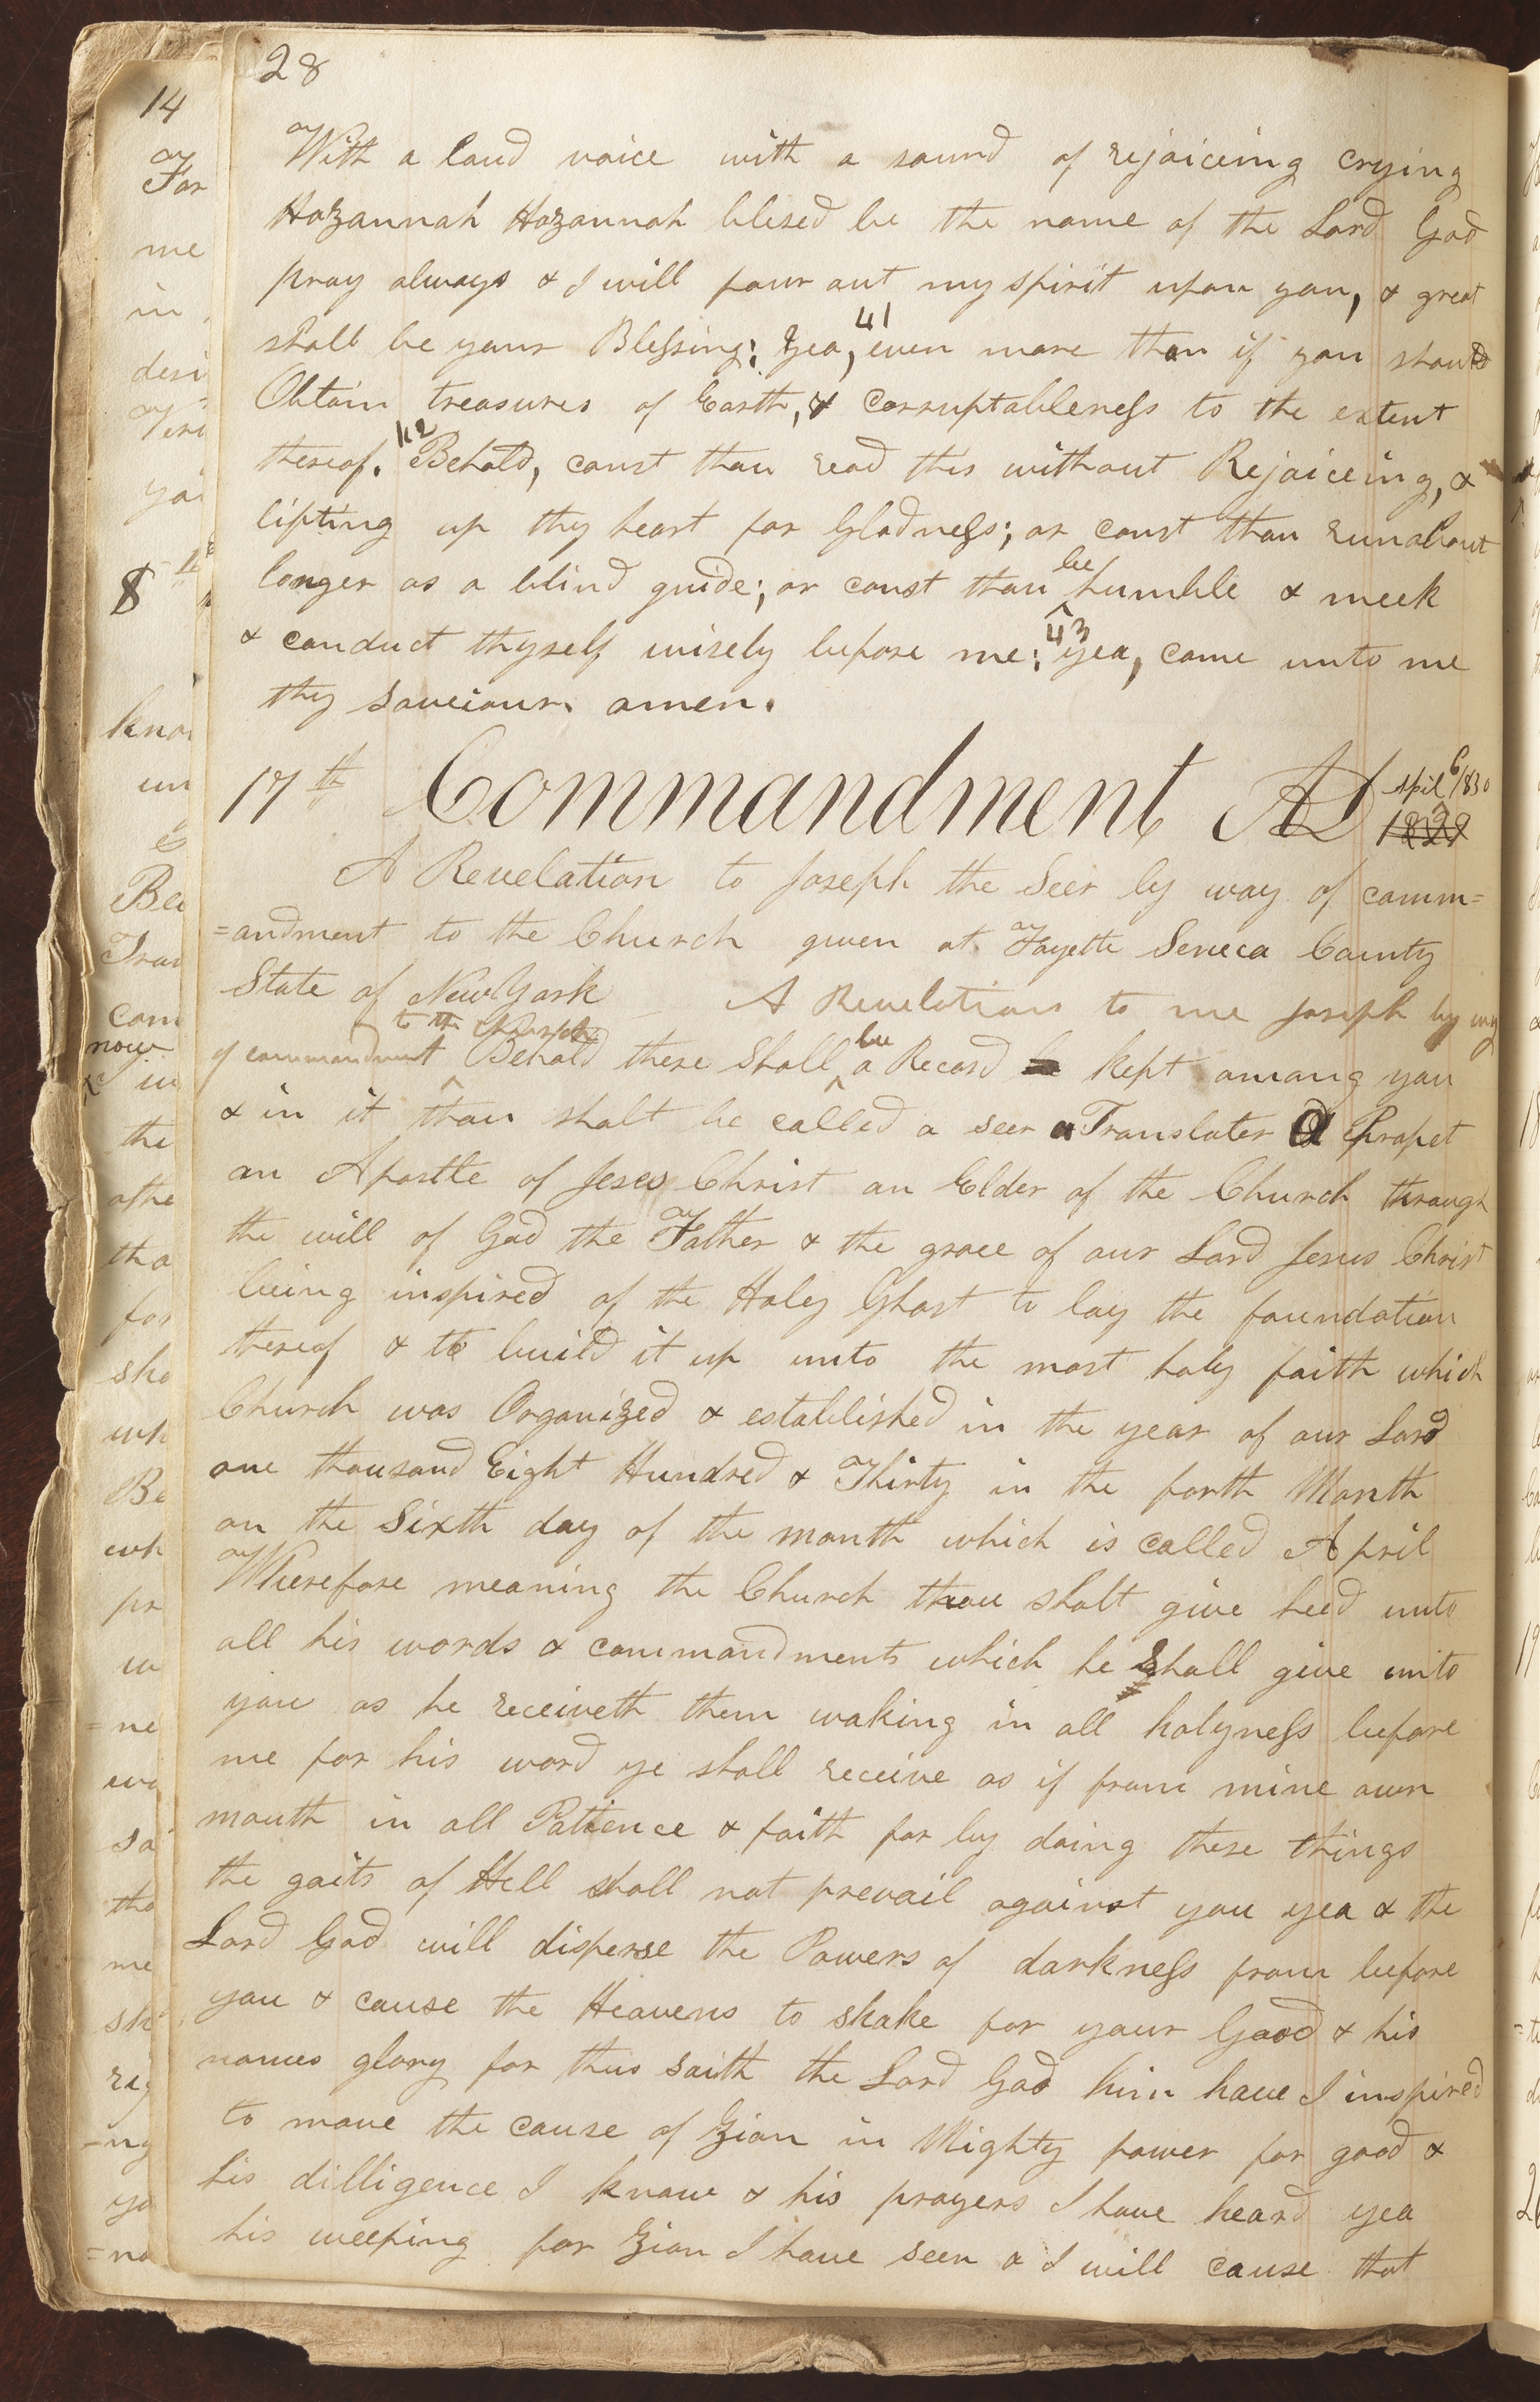 28
With a loud voice with a sound of rejoiceing crying
Hozannah Hozannah blesed be the name of the Lord God
pray always & I will pour out my spirit upon you, & great
shall be your Blessing; 41 Yea, even more than if you should
Obtain treasures of Earth, & corruptableness to the extent
thereof. 42 Behold, canst thou read this without Rejoiceing, &
lifting up thy heart for Gladness; or canst thou runabout
longer as a blind guide; or canst thou be humble & meek
& conduct thyself wisely before me; 43 yea, come unto me
thy saveiour. amen.
17th Commandment AD April 6 1830
1829
A Revelation to Joseph the Seer by way of comm=
=andment to the Church given at Fayette Seneca County
State of New York A Revelation to me Joseph by way
of commandment to the Church Behold there Shall be a Record kept among you
& in it thou shalt be called a seer a Translater a Propet
an Apostle of Jesus Christ an Elder of the Church through
the will of God the Father & the grace of our Lord Jesus Christ
being inspired of the Holy Ghost to lay the foundation
thereof & to build it up unto the most holy faith which
Church was Organized & established in the year of our Lord
one thousand Eight Hundred & Thirty in the forth Month
on the Sixth day of the month which is called April
Wherefore meaning the Church thou shalt give heed unto
all his words & commandments which he shall give unto
you as he receiveth them waking in all holyness before
me for his word ye shall receive as if from mine own
mouth in all Patience & faith for by doing these things
the gaits of Hell shall not prevail against you yea & the
Lord God will disperse the Powers of darkness from before
you & cause the Heavens to shake for your Good & his
names glory for thus saith the Lord God him have I inspired
to move the cause of Zion in Mighty power for good &
his dilligence I know & his prayers I have heard yea
his weeping for Zion I have seen & I will cause that
14
For
me
in
8
now
the